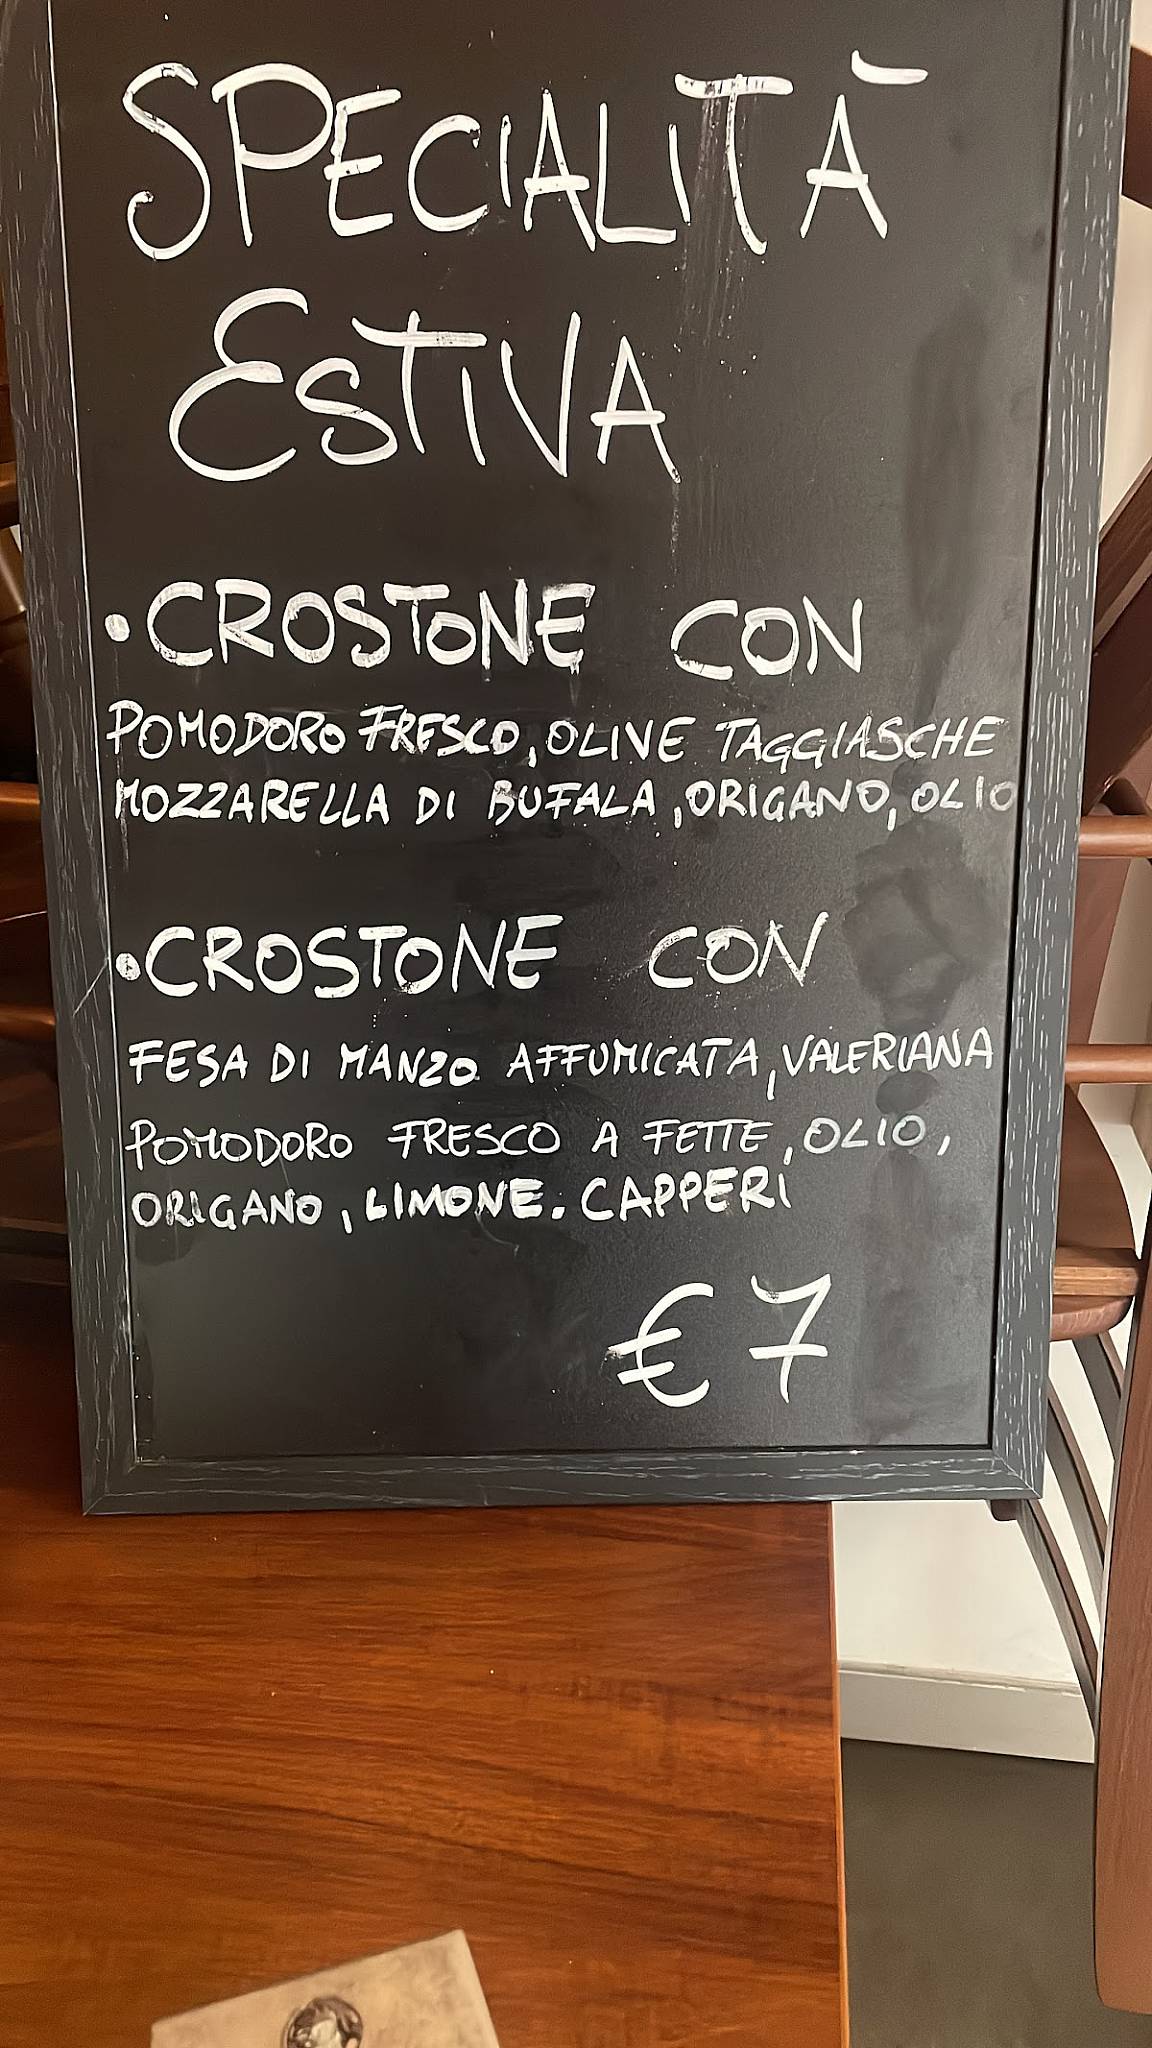 SPECIALITÀ
ESTIVA
• CROSTONE CON
POMODORO FRESCO, OLIVE TAGGIASCHE
MOZZARELLA DI BUFALA, ORIGANO, OLIO
• CROSTONE CON
FESA DI MANZO AFFUMICATA, VALERIANA
POMODORO FRESCO A FETTE, OLIO,
ORIGANO, LIMONE. CAPPERI
€ 7